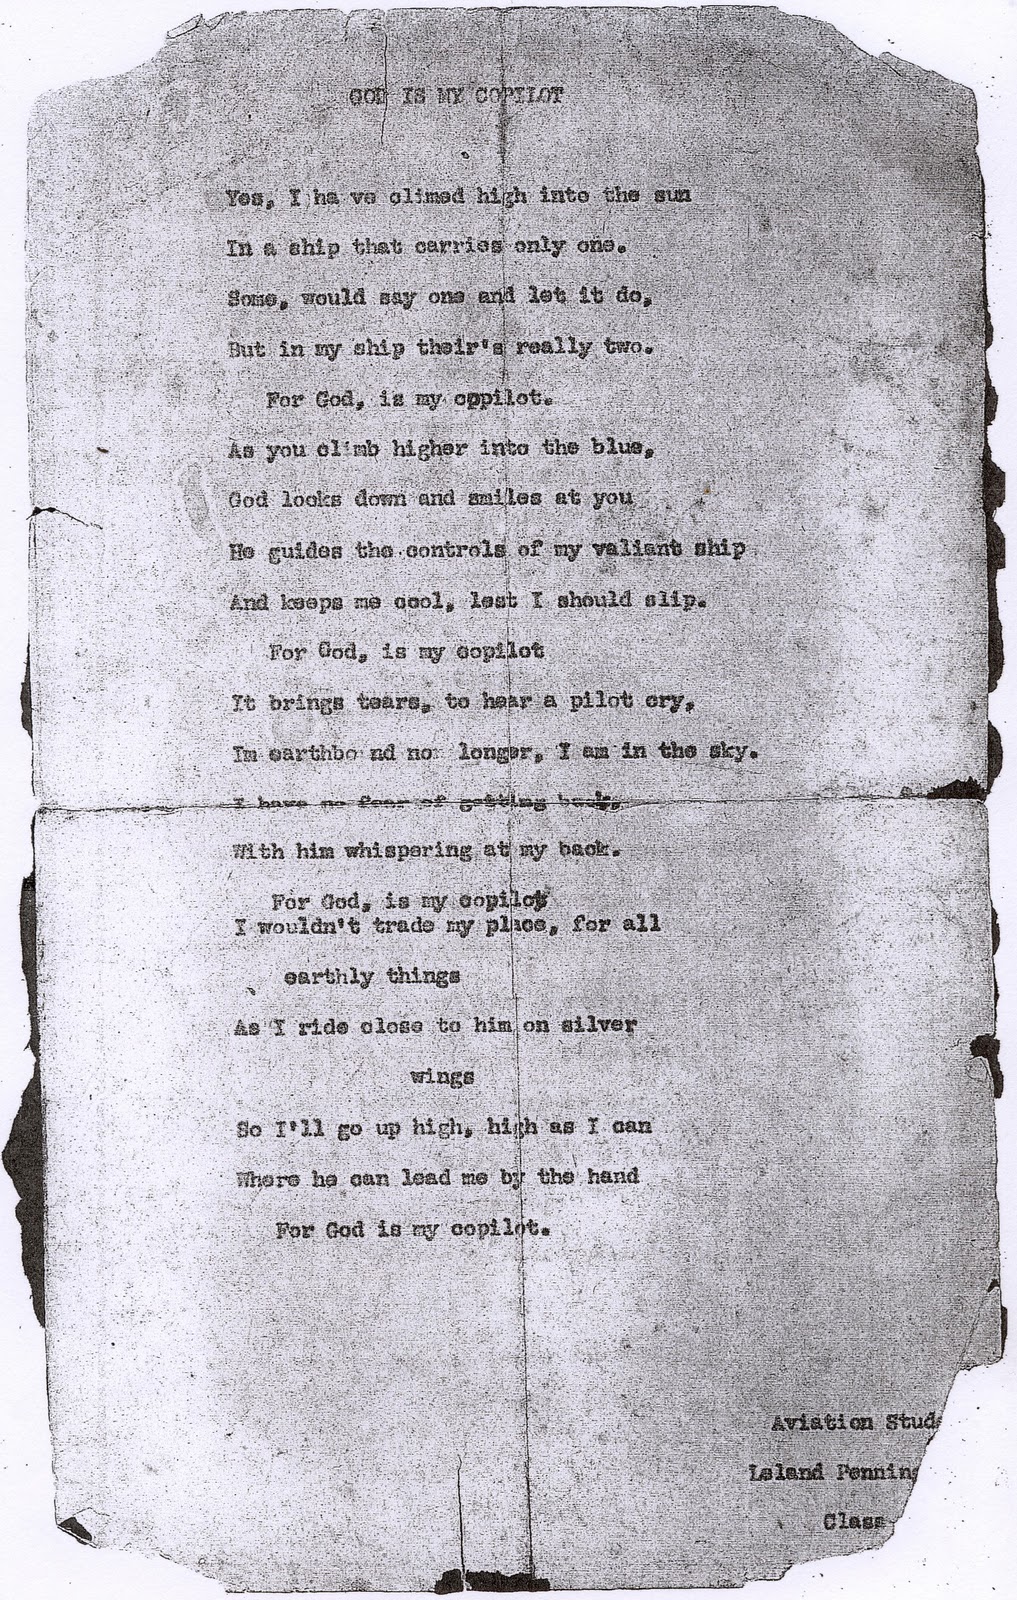 GOD IS MY COPILOT
Yes, I ha ve climed high into the sun
In a ship that carries only one.
Some, would say one and let it do,
But in my ship their's really two.
For God, is my copilot.
As you climb higher into the blue,
God looks down and smiles at you
He guides the controls of my valiant ship
And keeps me cool, lest I should slip.
For God, is my copilot
It brings tears, to hear a pilot cry,
Im earthbo nd no longer, I am in the sky.
I have no fear of getting back,
With him whispering at my back.
For God, is my copilot
I wouldn't trade my place, for all
earthly things
As I ride close to him on silver
wings
So I'll go up high, high as I can
Where he can lead me by the hand
For God is my copilot.
Aviation Stude
Leland Penning
Class